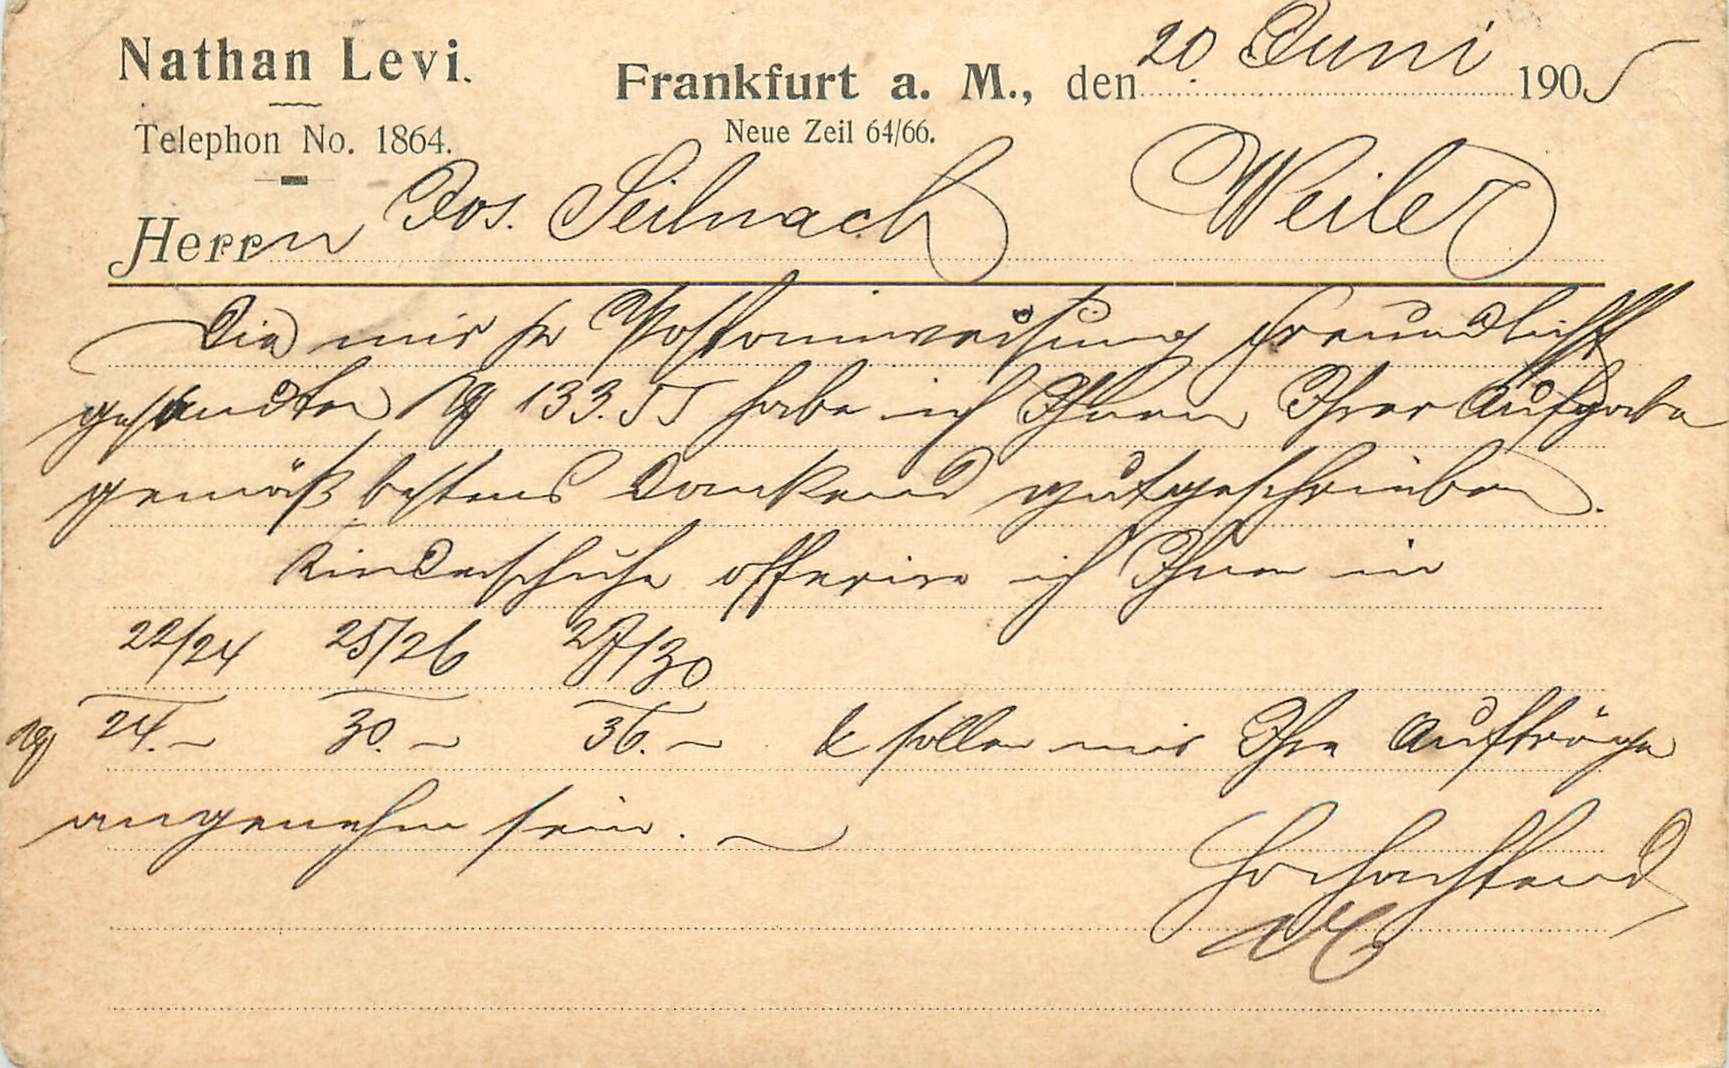 Nathan Levi.
Telephon No. 1864.
Frankfurt a. M., den 20. Juni 1905
Neue Zeil 64/66.
Herrn Jos. Seilnach Weiler
Die mir pr Postanweisung freundlichst
gesandten Mk 133.55 habe ich Ihnen Ihrer Aufgabe
gemäß bestens dankend gutgeschrieben.
Kinderschuhe offerire ich Ihnen in
22/24 25/26 27/30
Mk 24.– 30.– 36.– & sollen mir Ihre Aufträge
angenehm sein. –
Hochachtend